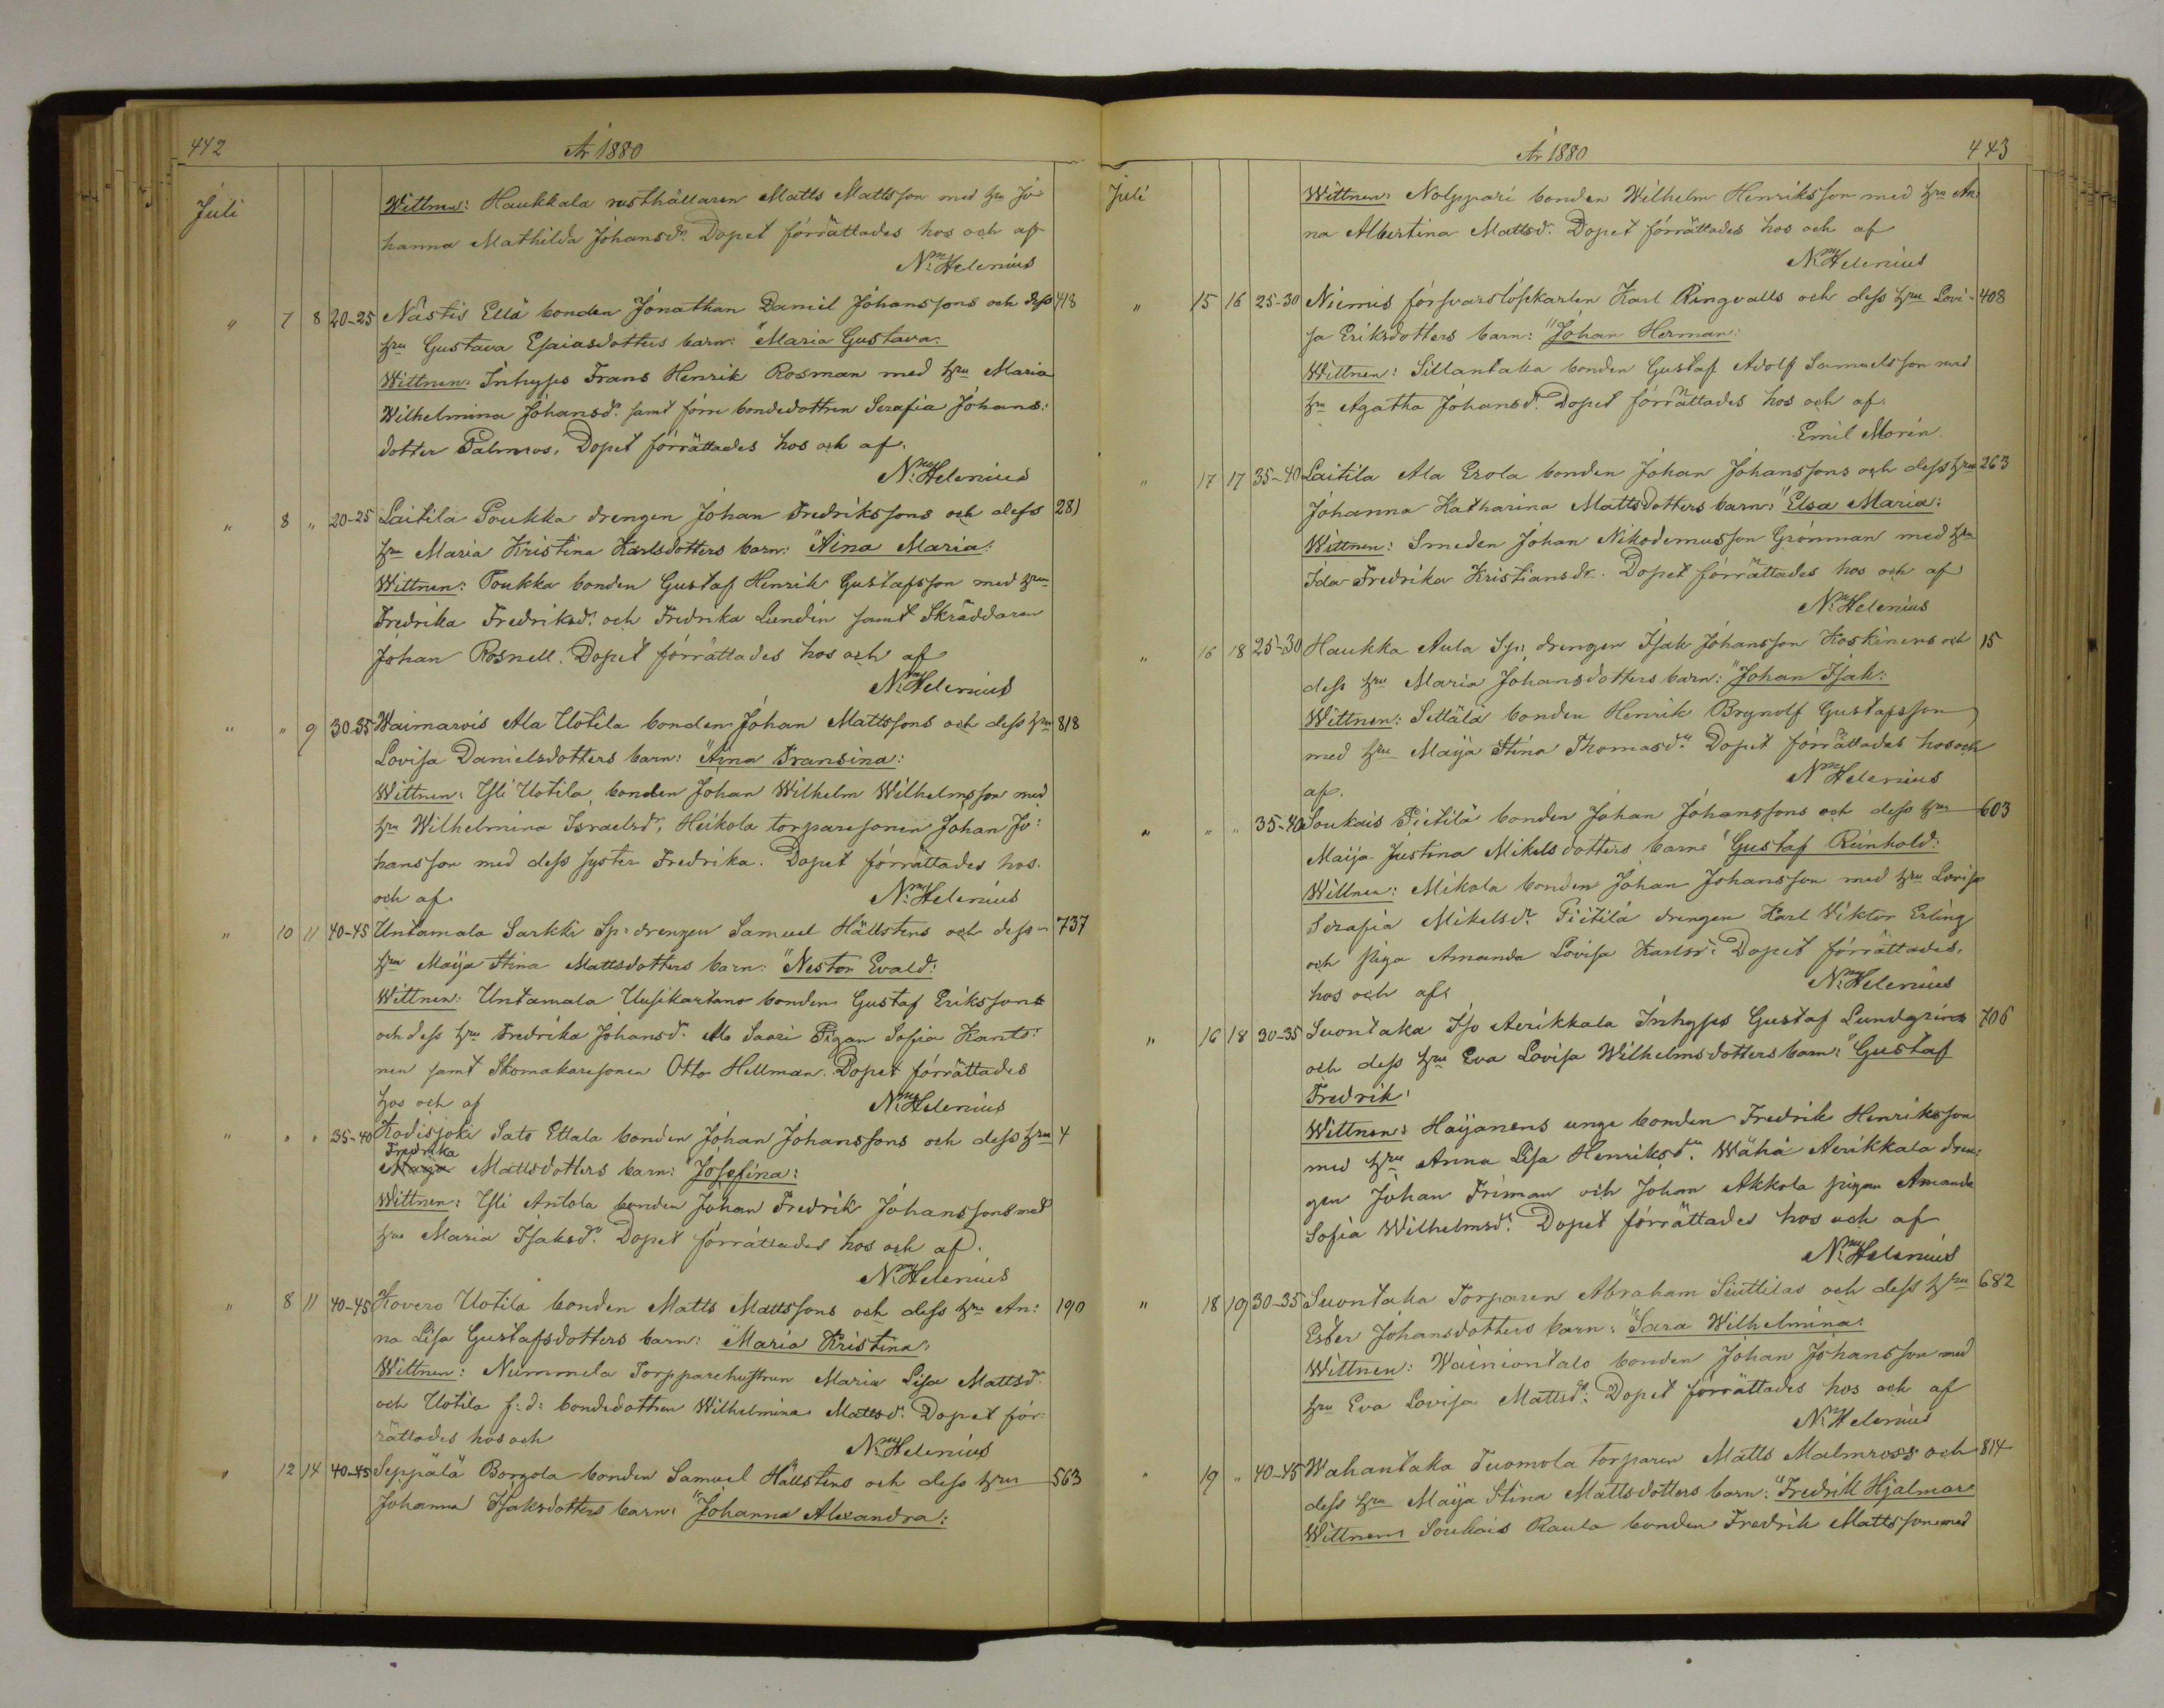 442
År 1880
Juli
Wittnen: Haukkala rusthållaren Matts Mattsson med hru Jo-
hanna Mathilda Johansdr. Dopet förrättades hos och af
N. Helenius
" 7 8 20-25 Nästis Ellä bonden Jonathan Daniel Johanssons och dess 418
hru Gustava Esaiasdotters barn: "Maria Gustava:
Wittnen: Inhyses Frans Henrik Rosman med hru Maria
Wilhelmina Johansdr. samt förre bondedottren Serafia Johans:
dotter Palmros. Dopet förrättades hos och af.
N. Helenius
" 8 " 20-25 Laitila Poukka drengen Johan Fredrikssons och dess 281
hru Maria Kristina Karlsdotters barn: "Aina Maria:
Wittnen: Poukka bonden Gustaf Henrik Gustafsson med hru
Fredrika Fredriksdr. och Fredrika Lundén samt Skräddaren
Johan Rosnell. Dopet förrättades hos och af
N. Helenius
" " 9 30-35 Waimarvis Ala Uotila bonden Johan Mattssons och dess hru 818
Lovisa Danielsdotters barn: "Aina Fransina:
Wittnen: Yli Uotila bonden Johan Wilhelm Wilhelmsson med
hru Wilhelmina Israelsdr. Heikola torparesonen Johan Jo:
hansson med dess syster Fredrika. Dopet förrättades hos
och af. N. Helenius
" 10 11 40-45 Untamala Sarkki Sp: drengen Samuel Hällstens och dess 737
hru Maija Stina Mattsdotters barn: "Nestor Evald:
Wittnen: Untamala Uusikartano bonden Gustaf Erikssons
och dess hru Fredrika Johansdr. Ala Saari Pigan Sofia Kanto:
nen samt Skomakaresonen Otto Hellman. Dopet förrättades
hos och af N. Helenius
" " " 35-40 Kodisjoki Sato Ettala bonden Johan Johanssons och dess hru 4
Fredrika
Maija Mattsdotters barn: "Josefina:
Wittnen: Yli Antola bonden Johan Fredrik Johanssons med
hru Maria Isaksdr. Dopet förrättades hos och af.
N. Helenius
" 8 11 40-45 Kovero Uotila bonden Matts Mattssons och dess hru An: 190
na Lisa Gustafsdotters barn: "Maria Kristina:
Wittnen: Nummela Torpparehustrun Maria Lisa Mattsdr.
och Uotila f:d: bondedottren Wilhelmina Mattsdr. Dopet för-
rättades hos och N. Helenius
" 12 14 40-45 Seppälä Borgola bonden Samuel Hällstens och dess hru 563
Johanna Isaksdotters barn: "Johanna Alexandra:
År 1880
443
Juli
Wittnen: Nolppari bonden Wilhelm Henriksson med hru An:
na Albertina Mattsdr. Dopet förrättades hos och af
N. Helenius
" 15 16 25-30 Niemis försvarslöskarlen Karl Ringvalls och dess hru Lovi- 408
sa Eriksdotters barn: "Johan Herman:
Wittnen: Sillantaka bonden Gustaf Adolf Samuelsson med
hru Agatha Johansdr. Dopet förrättades hos och af.
Emil Morén
" 17 17 35-40 Laitila Ala Erola bonden Johan Johanssons och dess hru 263
Johanna Katharina Mattsdotters barn: "Elsa Maria:
Wittnen: Smeden Johan Nikodemusson Grönman med hru
Ida Fredrika Kristiansdr. Dopet förrättades hos och af
N. Helenius
" 16 18 25-30 Haukka Aula Sp: drengen Isak Johansson Koskinens och 15
dess hru Maria Johansdotters barn: "Johan Isak:
Wittnen: Settälä bonden Henrik Brynolf Gustafsson
med hru Maija Stina Thomasdr. Dopet förrättades hos och
af. N. Helenius
" " " 35-40 Soukais Pietilä bonden Johan Johanssons och dess hru 603
Maija Justina Mikelsdotters barn: "Gustaf Reinhold:
Wittnen: Mikola bonden Johan Johansson med hru Lovisa
Serafia Mikelsdr. Pietilä drengen Karl Wiktor Erling
och piga Amanda Lovisa Karlsdr. Dopet förrättades.
hos och af. N. Helenius
" 16 18 30-35 Suontaka Iso Aerikkala Inhyses Gustaf Lundgréns 706
och dess hru Eva Lovisa Wilhelmsdotters barn: "Gustaf
Fredrik:
Wittnen: Haijanens unge bonden Fredrik Henriksson
med hru Anna Lisa Henriksdr. Wähä Aerikkala dren:
gen Johan Friman och Johan Akkola pigan Amanda
Sofia Wilhelmsdr. Dopet förrättades hos och af
N. Helenius
" 18 19 30-35 Suontaka Torparen Abraham Siuttilas och dess hru 682
Ester Johansdotters barn: "Sara Wilhelmina:
Wittnen: Wainiontalo bonden Johan Johansson med
hru Eva Lovisa Mattsdr. Dopet förrättades hos och af
N. Helenius
" 19 " 40-45 Wahantaka Tuomola torparen Matts Malmross och 814
dess hru Maija Stina Mattsdotters barn: "Fredrik Hjalmar:
Wittnen: Soukais Raula bonden Fredrik Mattsson med